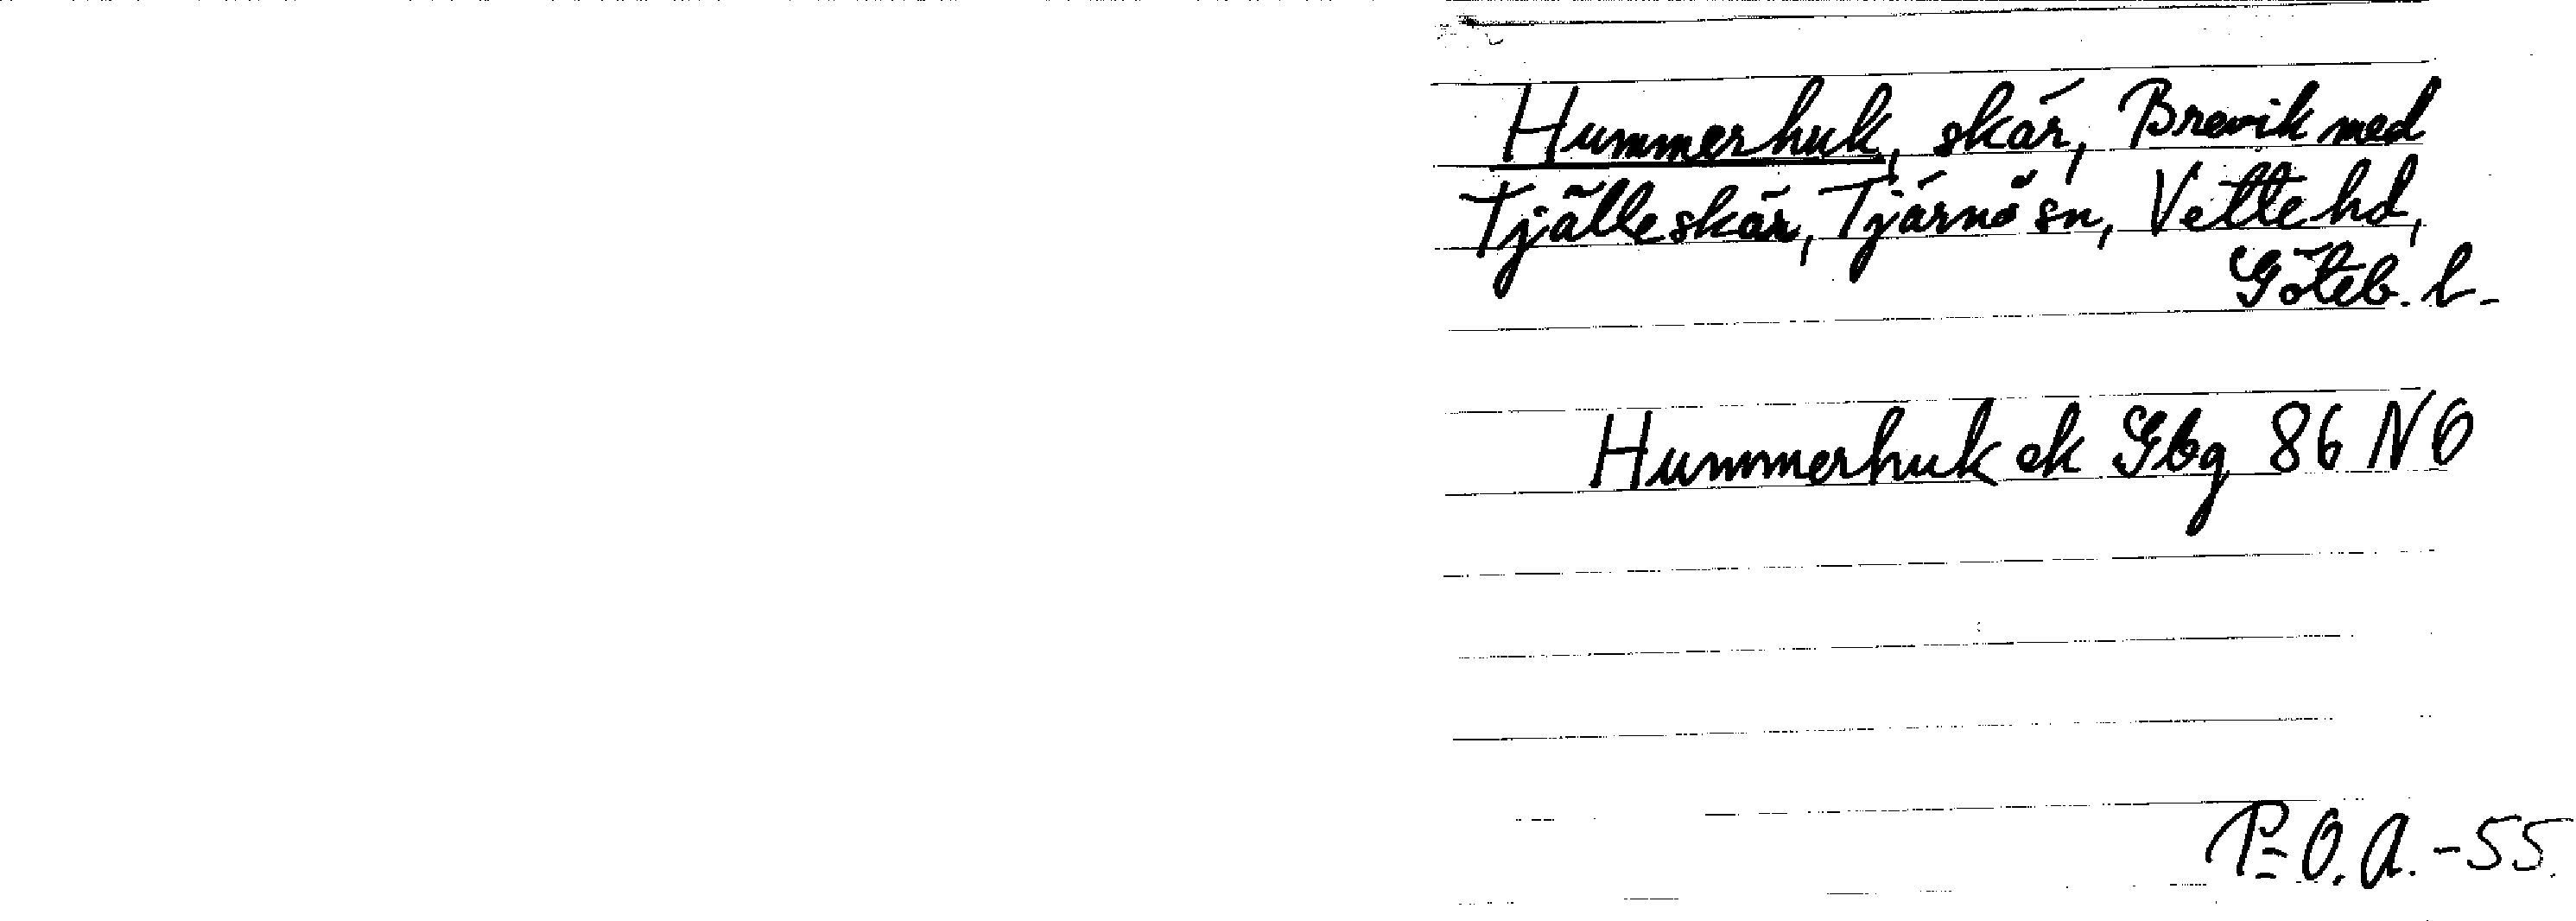 Hummerhuk, skär, Brevik med
Tjälleskär, Tjärnö sn, Vette hd,
Göteb. l.
Hummerhuk ek Gbg 86 NO
P-O.A. -55.